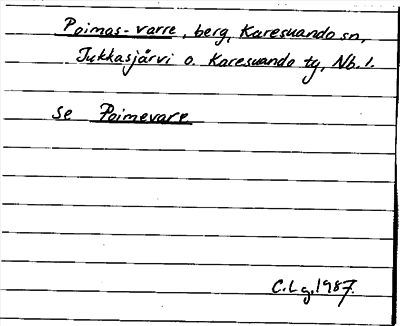 Poimas-varre, berg, Karesuando sn,
Jukkasjärvi o. Karesuando tg, Nb. l.
se Poimevare
C.Lg. 1987.